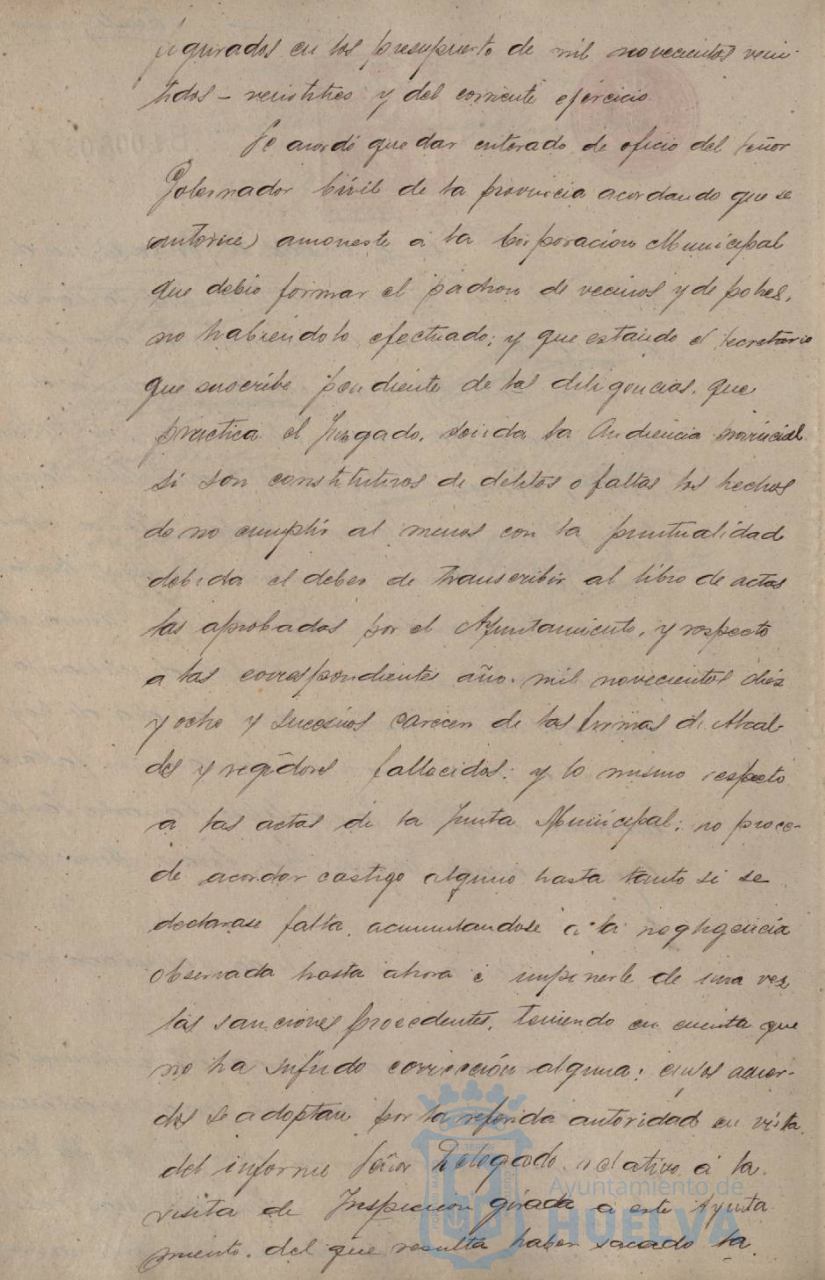 figurados en los presupuesto de mil novecientos vein-
tidos - veintitres y del corriente ejercicio.
Se acordó quedar enterado de oficio del Señor
Gobernador Civil de la provincia acordando que se
amoneste á la Corporación Municipal
que debió formar el padron de vecinos y de pobres,
no habiendolo efectuado; y que estando el Secretario
que suscribe pendiente de las diligencias, que
practica el Juzgado, la Audiencia provincial
si son constitutivos de delitos o faltas los hechos
de no cumplir al menos con la puntualidad
debida el deber de transcribir al libro de actas
las aprobadas por el Ayuntamiento, y respecto
a las correspondientes año mil novecientos diez
y ocho y sucesivos carecen de las firmas de Alcal-
des y regidores fallecidos; y lo mismo respecto
a las actas de la Junta Municipal; no proce-
de acordar castigo alguno hasta tanto si se
declarase falta, acumulandose a la negligencia
observada hasta ahora é imponerle de una vez
las sanciones procedentes, teniendo en cuenta que
no ha sufrido corrección alguna; cuyos acuer-
dos se adoptan por la referida autoridad en vista
del informe Señor Delegado relativo á la
visita de Inspeccion girada a este Ayunta
miento, del que resulta haber sacado la
Ayuntamiento de
HUELVA